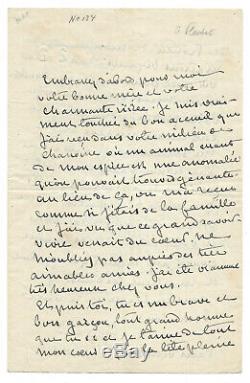 No 134
G. Flaubert
Embrassez d'abord, pour moi
votre bonne mère et votre
charmante nièce. Je suis vrai-
ment touchée du bon accueil que
j'ai reçu dans votre milieu de
chanoine où un animal errant
de mon espèce est une anomalie
qu'on pouvait trouver gênante.
au lieu de ça, on m'a reçue
comme si j'étais de la famille
et j'ai vu que ce grand savoir
vivre venait du cœur. ne
m'oubliez pas auprès des très
aimables amies. j'ai été vraiment
très heureuse chez vous.
Et puis, toi, tu es un brave et
bon garçon, tout grand homme
que tu es et je t'aime de tout
mon cœur. j'ai la tête pleine